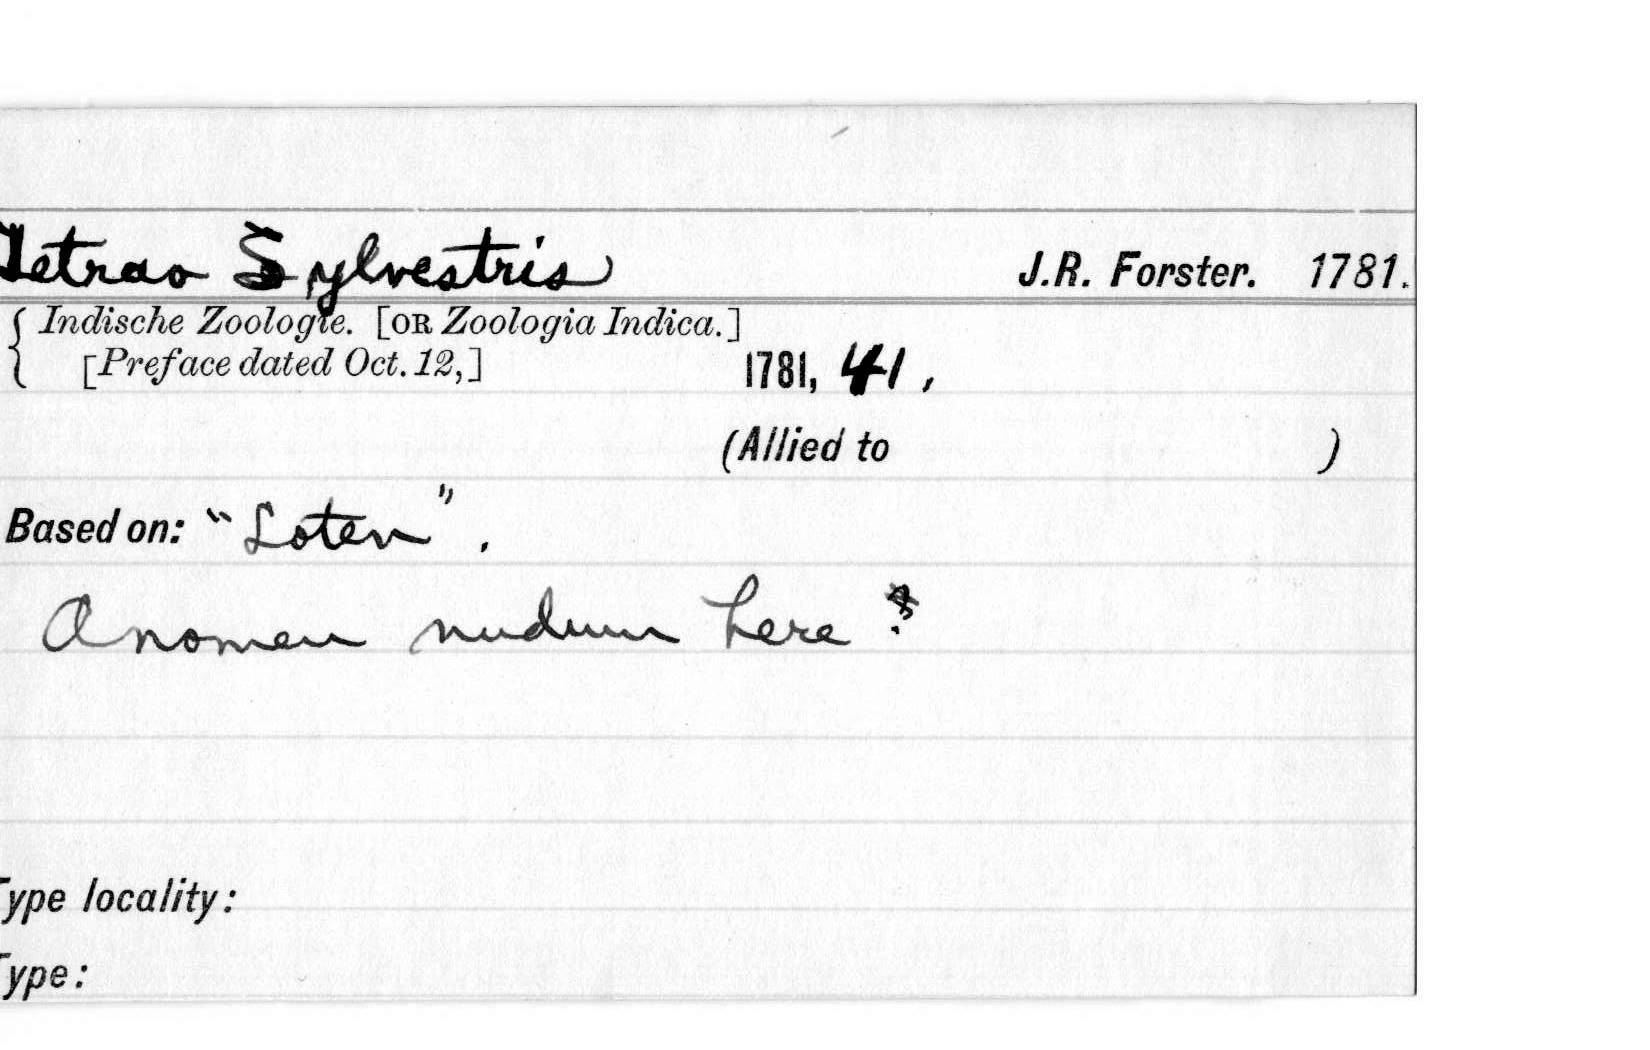 Tetrao Sylvestris J.R. Forster. 1781.
{ Indische Zoologie. [OR Zoologia Indica.]
[Preface dated Oct. 12,] 1781, 41,
(Allied to )
Based on: "Loten".
A nomen nudum here ?
Type locality:
Type: